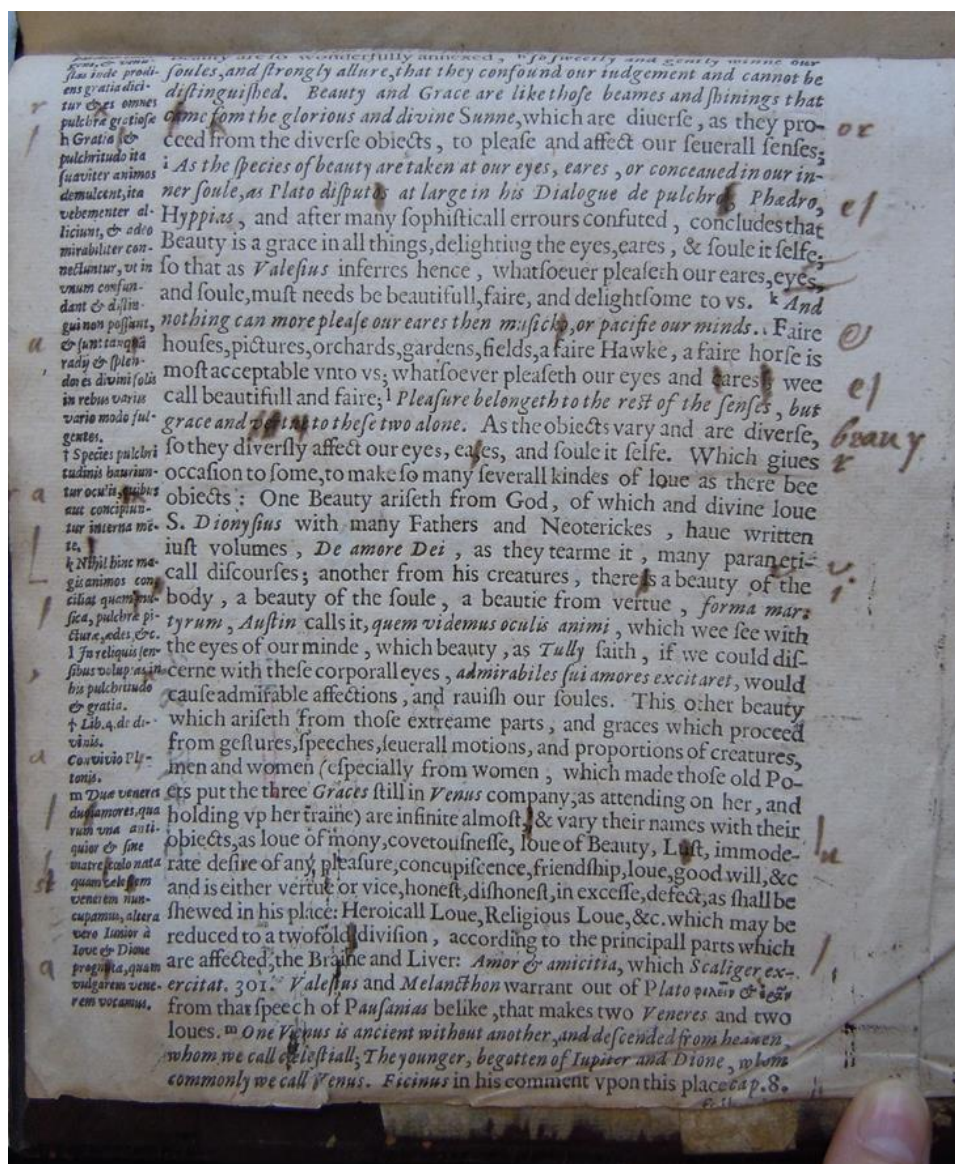 soules, and strongly allure, that they confound our iudgement and cannot be
distinguished. Beauty and Grace are like those beames and shinings that
came fom the glorious and divine Sunne, which are diuerse, as they pro-
ceed from the diverse obiects, to please and affect our seuerall senses;
i As the species of beauty are taken at our eyes, eares, or conceaued in our in-
ner soule, as Plato disputes at large in his Dialogue de pulchro, Phædro,
Hyppias, and after many sophisticall errours confuted, concludes that
Beauty is a grace in all things, delighting the eyes, eares, & soule it selfe;
so that as Valesius inferres hence, whatsoeuer pleaseth our eares, eyes,
and soule, must needs be beautifull, faire, and delightsome to vs. k And
nothing can more please our eares then musicke, or pacifie our minds. Faire
houses, pictures, orchards, gardens, fields, a faire Hawke, a faire horse is
most acceptable vnto vs; whatsoever pleaseth our eyes and eares, wee
call beautifull and faire; l Pleasure belongeth to the rest of the senses, but
grace and to these two alone. As the obiects vary and are diverse,
so they diversly affect our eyes, eares, and soule it selfe. Which giues
occasion to some, to make so many severall kindes of loue as there bee
obiects: One Beauty ariseth from God, of which and divine loue
S. Dionysius with many Fathers and Neoterickes, haue written
iust volumes, De amore Dei, as they tearme it, many paraneti-
call discourses; another from his creatures, there is a beauty of the
body, a beauty of the soule, a beautie from vertue, forma mar-
tyrum, Austin calls it, quem videmus oculis animi, which wee see with
the eyes of our minde, which beauty, as Tully saith, if we could dis-
cerne with these corporall eyes, admirabiles sui amores excitaret, would
cause admirable affections, and rauish our soules. This other beauty
which ariseth from those extreame parts, and graces which proceed
from gestures, speeches, seuerall motions, and proportions of creatures,
men and women (especially from women, which made those old Po-
ets put the three Graces still in Venus company, as attending on her, and
holding vp her traine) are infinite almost, & vary their names with their
obiects, as loue of mony, covetousnesse, loue of Beauty, Lust, immode-
rate desire of any pleasure, concupiscence, friendship, loue, good will, &c
and is either vertue or vice, honest, dishonest, in excesse, defect, as shall be
shewed in his place: Heroicall Loue, Religious Loue, &c. which may be
reduced to a twofold division, according to the principall parts which
are affected, the Braine and Liver: Amor & amicitia, which Scaliger ex-
ercitat. 301. Valesius and Melancthon warrant out of Plato φιλεῖν &
from that speech of Pausanias belike, that makes two Veneres and two
loues. m One Venus is ancient without another, and descended from heauen,
whom we call celestiall; The younger, begotten of Iupiter and Dione, whom
commonly we call Venus. Ficinus in his comment vpon this place cap. 8.
stas inde prodi-
ens gratia dici-
tur & es omnes
pulchræ gratiosæ
h Gratia &
pulchritudo ita
suaviter animos
demulcent, ita
vehementer al-
liciunt, & adeo
mirabiliter con-
nectuntur, vt in
vnum confun-
dant & distin-
gui non possunt,
& sunt tanquã
radij & splen-
dores divini solis
in rebus varijs
vario modo ful-
gentes.
† Species pulchri
tudinis hauriun-
tur oculis, quibus
aut concipiun-
tur interna mẽ-
te.
k Nihil hinc ma-
gis animos con-
ciliat quam mu-
sica, pulchræ pi-
cturæ, ædes, &c.
l In reliquis sen-
sibus voluptas in
his pulchritudo
& gratia.
† Lib. 4. de di-
vinis.
Convivio Pla-
tonis.
m Duæ veneres
duo amores, qua
rum vna anti-
quior & sine
matre, cœlo nata
quam celestem
venerem nun-
cupamus, altera
vero Iunior à
Iove & Dione
prognata, quam
vulgarem vene-
rem vocamus.
or
el
e
el
beauy
r
v
i
u
r
a
a
a
st
a